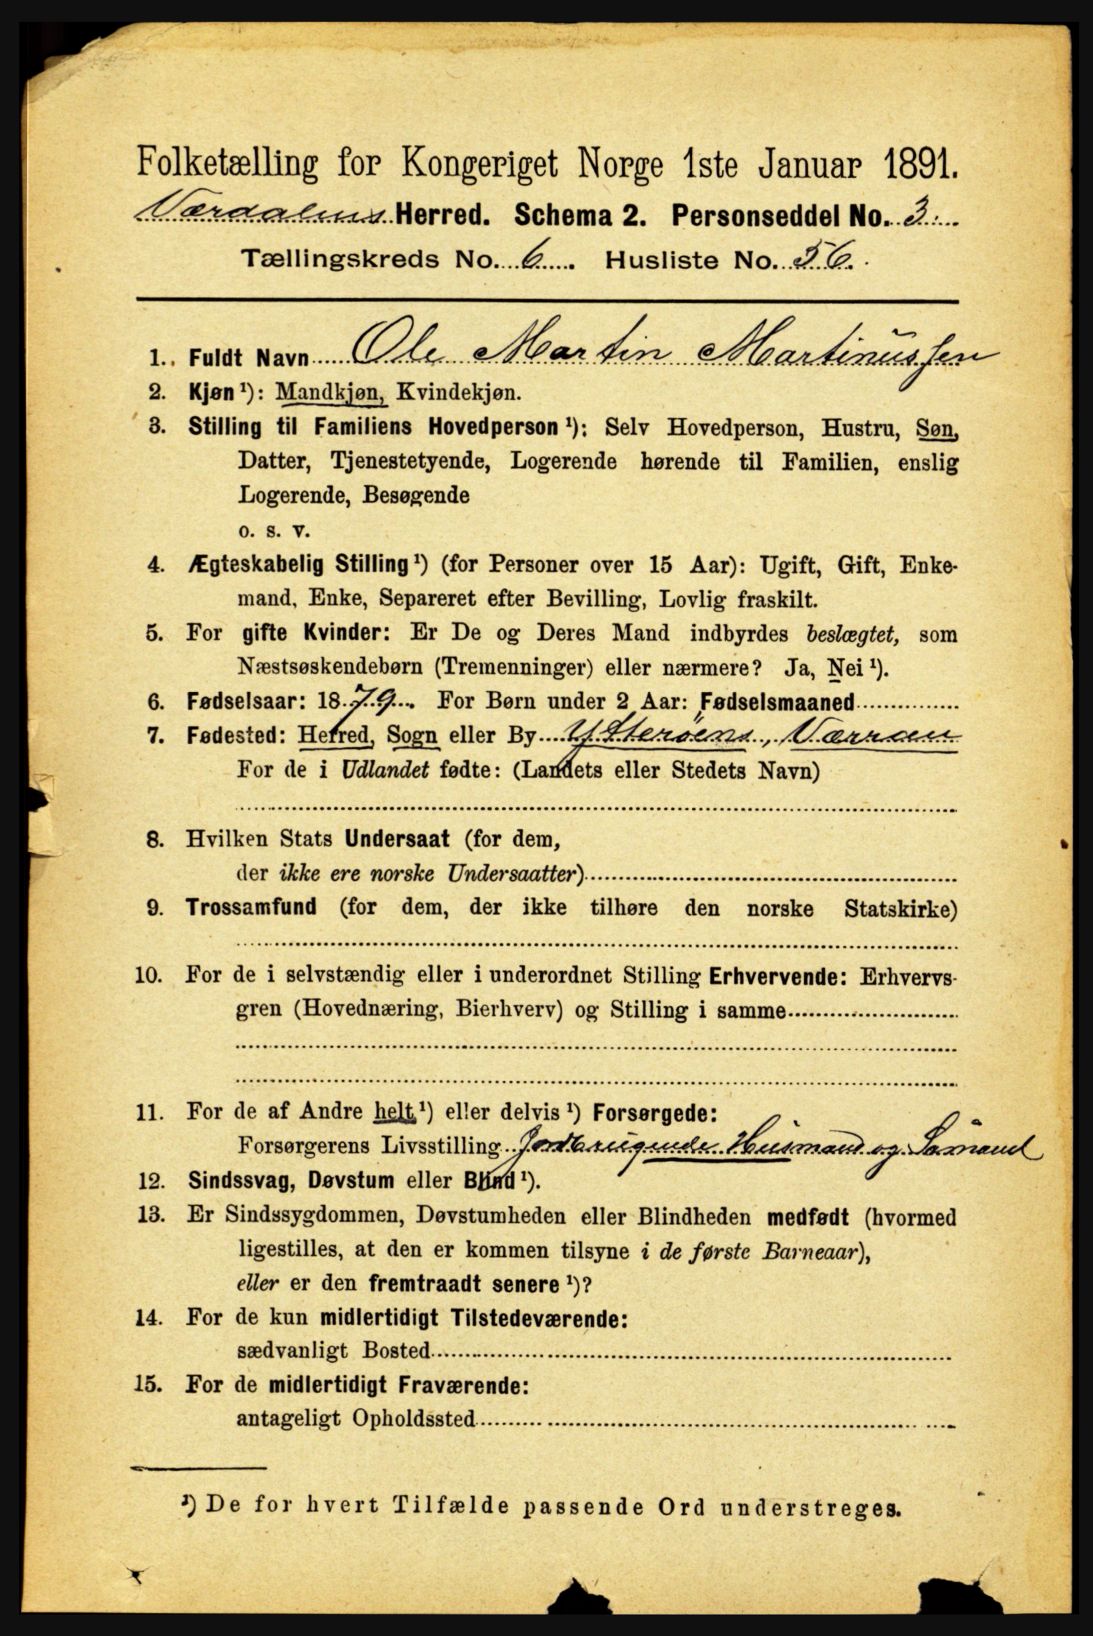 Folketælling for Kongeriget Norge 1ste Januar 1891.
Værdalens Herred. Schema 2. Personseddel No. 3.
Tællingskreds No. 6. Husliste No. 56.
1. Fuldt Navn Ole Martin Martinussen
2. Kjøn ¹): Mandkjøn, Kvindekjøn.
3. Stilling til Familiens Hovedperson ¹): Selv Hovedperson, Hustru, Søn,
Datter, Tjenestetyende, Logerende hørende til Familien, enslig
Logerende, Besøgende
o. s. v.
4. Ægteskabelig Stilling ¹) (for Personer over 15 Aar): Ugift, Gift, Enke-
mand, Enke, Separeret efter Bevilling, Lovlig fraskilt.
5. For gifte Kvinder: Er De og Deres Mand indbyrdes beslægtet, som
Næstsøskendebørn (Tremenninger) eller nærmere? Ja, Nei ¹).
6. Fødselsaar: 1879. For Børn under 2 Aar: Fødselsmaaned
7. Fødested: Herred, Sogn eller By Ytterøens, Værran
For de i Udlandet fødte: (Landets eller Stedets Navn)
8. Hvilken Stats Undersaat (for dem,
der ikke ere norske Undersaatter)
9. Trossamfund (for dem, der ikke tilhøre den norske Statskirke)
10. For de i selvstændig eller i underordnet Stilling Erhvervende: Erhvervs-
gren (Hovednæring, Bierhverv) og Stilling i samme
11. For de af Andre helt ¹) eller delvis ¹) Forsørgede:
Forsørgerens Livsstilling Jordbrugende Husmand og Sømand
12. Sindssvag, Døvstum eller Blind ¹).
13. Er Sindssygdommen, Døvstumheden eller Blindheden medfødt (hvormed
ligestilles, at den er kommen tilsyne i de første Barneaar),
eller er den fremtraadt senere ¹)?
14. For de kun midlertidigt Tilstedeværende:
sædvanligt Bosted
15. For de midlertidigt Fraværende:
antageligt Opholdssted
¹) De for hvert Tilfælde passende Ord understreges.